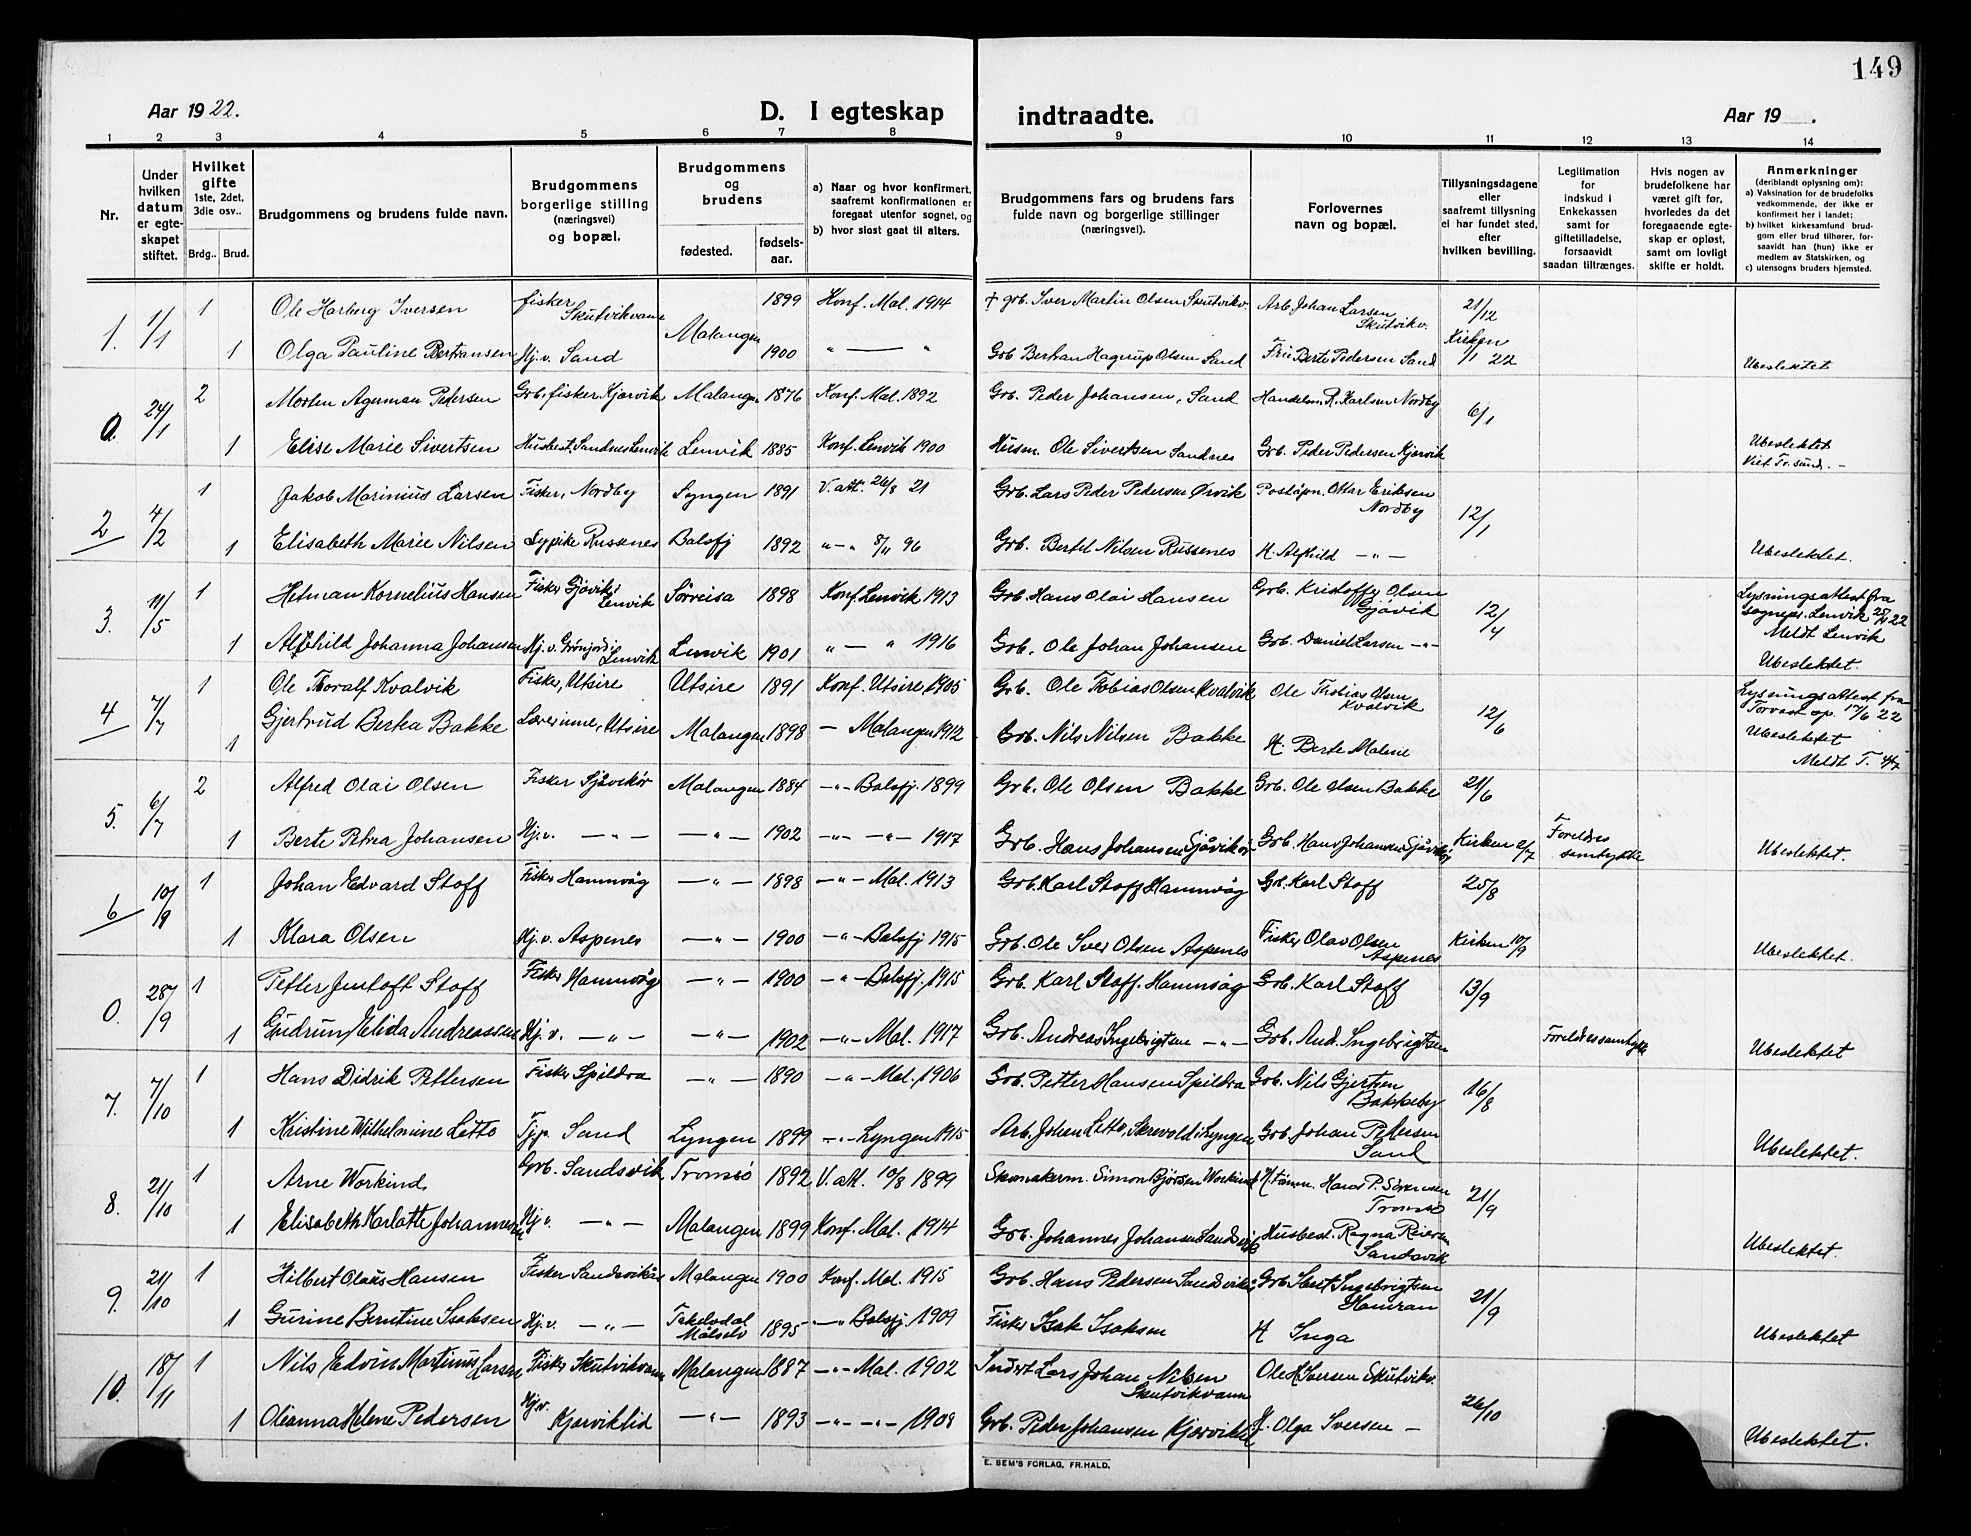 149
Aar 1922.
D. I egteskap indtraadte.
Aar 19 .
1 2 3 4 5 6 7 8 9 10 11 12 13 14
Nr.
Under hvilken datum er egteskapet stiftet.
Hvilket gifte 1ste, 2det, 3die osv..
Brdg.. Brud.
Brudgommens og brudens fulde navn.
Brudgommens borgerlige stilling (næringsvei) og bopæl.
Brudgommens og brudens
fødested. fødselsaar.
a) Naar og hvor konfirmert, saafremt konfirmationen er foregaat utenfor sognet, og
b) hvor sidst gaat til alters.
Brudgommens fars og brudens fars fulde navn og borgerlige stillinger (næringsvei).
Forlovernes navn og bopæl.
Tillysningsdagene eller saafremt tillysning ei har fundet sted, efter hvilken bevilling.
Legitimation for indskud i Enkekassen samt for giftetilladelse, forsaavidt saadan tiltrænges.
Hvis nogen av brudefolkene har været gift før, hvorledes da det foregaaende egteskap er opløst, samt om lovligt skifte er holdt.
Anmerkninger (deriblandt oplysning om):
a) Vaksination for de brudefolks vedkommende, der ikke er konfirmert her i landet;
b) hvilket kirkesamfund brudgom eller brud tilhører, forsaavidt han (hun) ikke er medlem av Statskirken, og
c) utensogns bruders hjemsted.
1. 1/1 1 Ole Harberg Iversen fisker Skutvikvann Malangen 1899 Konf. Mal. 1914 † grb. Iver Martin Olsen Skutvikv. Arb. Johan Larsen Skutvikv. 21/12
1 Olga Pauline Bertransen Hj.v. Sand 1900 " — " Grb Bertran Hagrup Olsen Sand Fru Berte Pedersen Sand Kirken 1/1 22 Ubeslektet
0. 24/1 2 Morten Agerman Pedersen Grb. fisker Kjørvik Malangen 1876 Konf. Mal. 1892 Grb. Peder Johansen, Sand Handelsm. R. Karlsen Nordby 6/1
1 Elise Marie Sivertsen Husbest. Sandnes Lenvik Lenvik 1885 Konf. Lenvik 1900 Husm. Ole Sivertsen Sandnes Grb. Peder Pedersen Kjørvik Ubeslektet Viet Tr.sund. -
2 4/2 1 Jakob Marinius Larsen Fisker, Nordby Lyngen 1891 V. att. 26/8 21 Grb. Lars Peder Pedersen Ørvik Poståpn. Ottar Eriksen Nordby 12/1
1 Elisabeth Marie Nilsen Sypike Russenes Balsfj 1892 " - " 8/11 96 Grb. Bertel Nilsen Russenes H. Alfhild - " - Ubeslektet.
3. 11/5 1 Herman Kornelius Hansen Fisker Gjøvik, Lenvik Sørreisa 1898 Konf Lenvik 1913 Grb. Hans Olai Hansen Grb. Kristoffer Olsen Gjøvik 12/4 Lysningsattest fra sognepr. Lenvik 25/4 22 Meldt Lenvik
1 Alfhild Johanna Johansen Hj.v. Grønjord Lenvik Lenvik 1901 " - " 1916 Grb. Ole Johan Johansen Grb. Daniel Larsen - " - Ubeslektet.
4 7/7 1 Ole Thoralf Kvalvik Fisker, Utsire Utsire 1891 Konf. Utsire 1905 Grb. Ole Tobias Olsen Kvalvik Ole Thobias Olsen Kvalvik 12/6 Lysningsattest fra Torvast sp. 17/6 22
1 Gjertrud Berka Bakke Lærerinne, Utsire Malangen 1898 - Malangen 1912 Grb. Nils Nilsen Bakke H. Berte Malene Ubeslektet Meldt T.
5. 6/7 2 Alfred Olai Olsen Fisker Sjåvikør Malangen 1884 - " - Balsfj. 1899 Grb. Ole Olsen Bakke Grb. Ole Olsen Bakke 21/6
1 Berte Petra Johansen Hj.v. - " - - " - 1902 - " - - " - 1917 Grb. Hans Johansen Sjåvikør Grb. Hans Johansen Sjåvikør Kirken 2/7 Foreldres samtykke Ubeslektet.
6 10/9 1 Johan Edvard Stoff Fisker Hamnvåg - " - 1898 - " - Mal. 1913 Grb. Karl Stoff Hamnvåg Grb. Karl Stoff 25/8
1 Klara Olsen Hj.v. Aspenes - " - 1900 - " - Balsfj 1915 Grb. Ole Iver Olsen Aspenes Fisker Olav Olsen Aspenes Kirken 10/9 Ubeslektet.
0. 28/9 1 Petter Justoft Stoff Fisker Hamnvåg - " - 1900 - " - Balsfj, 1915 Grb. Karl Stoff. Hamnvåg Grb. Karl Stoff 13/9
1 Gudrun Elida Andreassen Hj.v. - " - - " - 1902 - " - Mal. 1917 Grb. Andreas Ingebrigtsen - " - Grb. And. Ingebrigtsen Foreldressamtykke Ubeslektet
7. 7/10 1 Hans Didrik Pettersen Fisker Spildra - " - 1890 - " - Mal. 1906 Grb. Petter Hansen Spildra Grb. Nils Gjertsen Bakkeby 16/8
1 Kristine Wilhelmine Letto Tjp. Sand Lyngen 1899 - " - Lyngen 1915 Arb. Johan Letto, Skrevold i Lyngen Grb. Johan Pettersen Sand Ubeslektet.
8. 21/10 1 Arne Workind Grb. Sandsvik Tromsø 1892 V. att. 10/8 1899 Skomakerm. Simon Bjørsen Workind H. tømm. Hans P. Sørensen Tromsø 21/9
1 Elisabeth Karlotte Johannesen Hj.v. - " - Malangen 1899 Konf. Mal. 1914 Grb. Johannes Johansen Sandsvik Husbest. Ragna Reiersen Sandsvik Ubeslektet.
9. 21/10 1 Hilbert Olaus Hansen Fisker Sandsvikås Malangen 1900 Konf. Mal. 1915 Grb. Hans Pedersen Sandsvikås Grb. Ibert Ingebrigtsen Hamran 21/9
1 Gurine Berntine Isaksen Hj.v. - " - Takelvdal Målselv 1895 - " Balsfj. 1909 Fisker Isak Isaksen H Inga Ubeslektet
10. 18/11 1 Nils Edvin Martinus Larsen Fisker Skutvikvann Malangen 1887 - " - Mal. 1902 Indrt Lars Johan Nilsen Skutvikvann Ole H Iversen Skutvikv. 26/10
1 Oleanna Helene Pedersen Hj.v. Kjørviklid - " - 1893 - " - - " - 1908 Grb. Peder Johansen Kjørviklid H. Olga Iversen - Ubeslektet.
E. SEM'S FORLAG, FR.HALD.